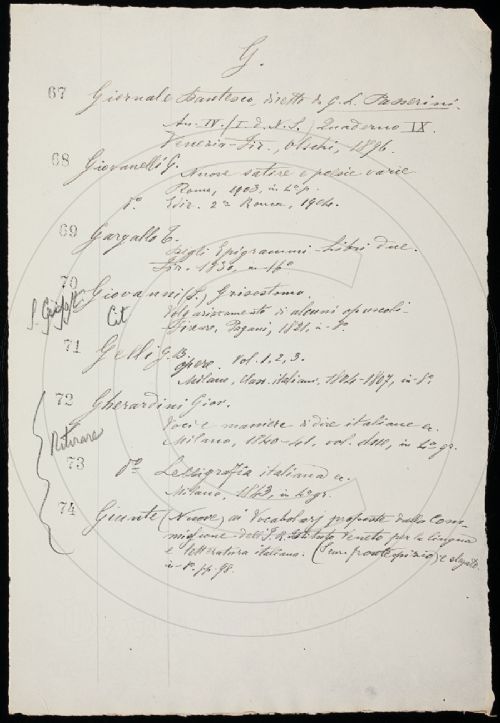 G.
67 Giornale Dantesco, diretto da G. L. Passerini.
An. IV. (I. d. N. S.) Quaderno IX.
Venezia-Fir., Olschi, 1896.
68 Giovanelli G.
Nuove satire e poesie varie
Roma, 1903. in 4º p.
dº. Ediz. 2ª Roma, 1904.
69 Gargallo T.
Degli Epigrammi Libri due.
Fir. 1830, in 16º
70 Giovanni (S.) Grisostomo.
S. Cit Volgarizzamento di alcuni opuscoli.
Firenze, Pagani, 1821, in 8º.
71 Gelli G. B.
Opere Vol. 1, 2, 3.
Milano, Class. italiani, 1804-1807, in 8º.
72 Gherardini Giov.
Voci e maniere di dire italiane ec.
Milano, 1840-41, vol. due, in 4º gr.
Ritirare
73 dº Lessigrafia italiana ec.
Milano, 1843, in 4º gr.
74 Giunte (Nuove) ai Vocabolarj proposte dalla Com-
missione dell'I. R. Istituto Veneto per la lingua
e letteratura italiana. (Senza frontespizio) e slegato
in 8º. pp. 98.